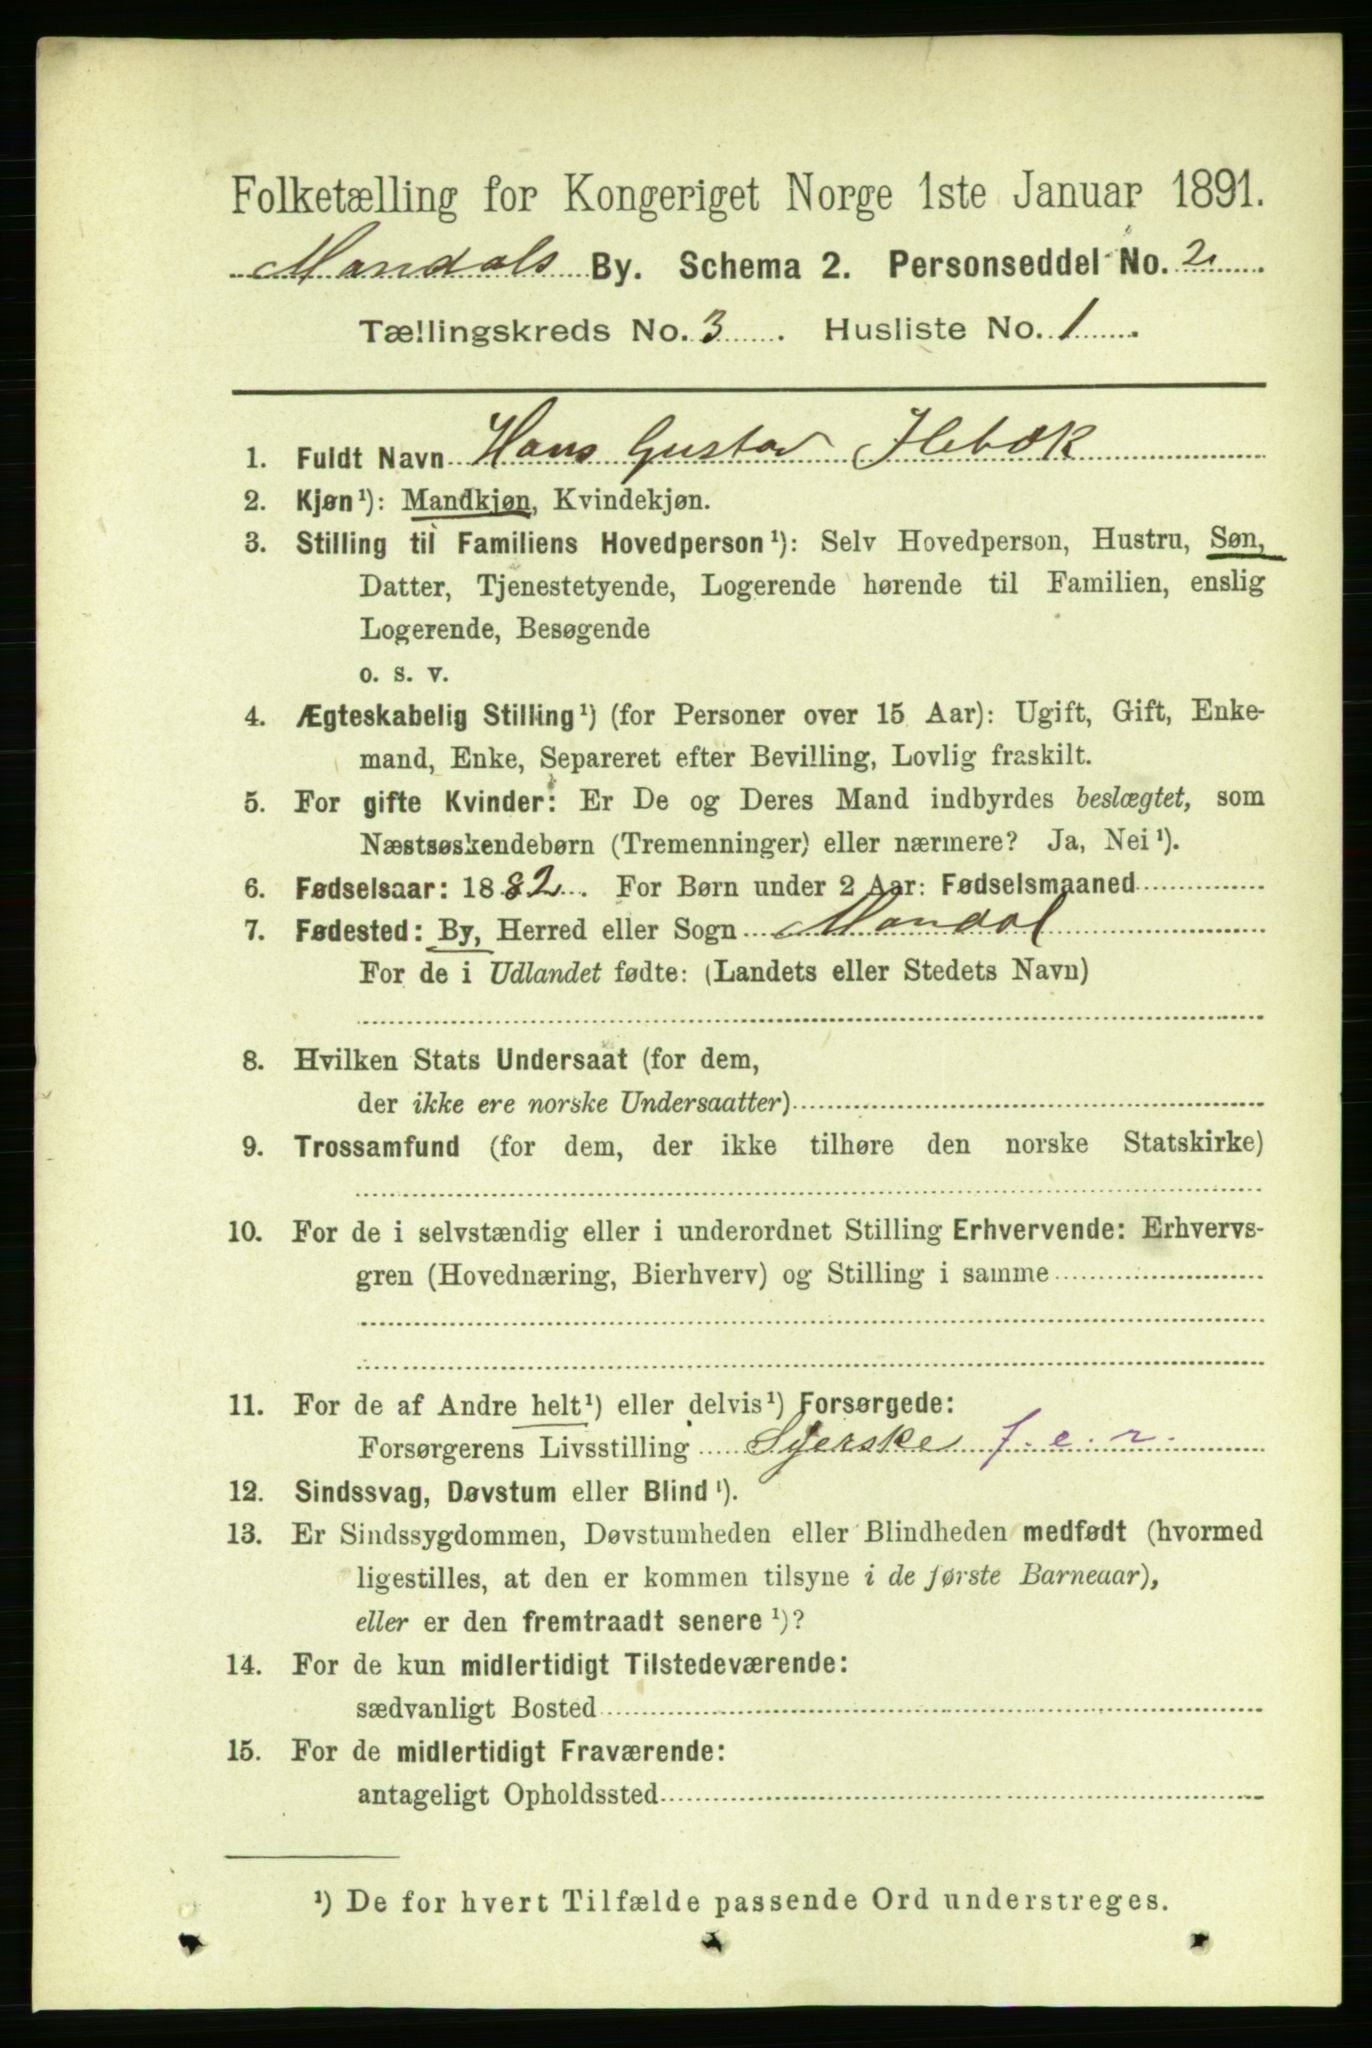 Folketælling for Kongeriget Norge 1ste Januar 1891.
Mandals By. Schema 2. Personseddel No. 2
Tællingskreds No. 3. Husliste No. 1.
1. Fuldt Navn Hans Gustav Ilebæk
2. Kjøn¹): Mandkjøn, Kvindekjøn.
3. Stilling til Familiens Hovedperson¹): Selv Hovedperson, Hustru, Søn,
Datter, Tjenestetyende, Logerende hørende til Familien, enslig
Logerende, Besøgende
o. s. v.
4. Ægteskabelig Stilling¹) (for Personer over 15 Aar): Ugift, Gift, Enke-
mand, Enke, Separeret efter Bevilling, Lovlig fraskilt.
5. For gifte Kvinder: Er De og Deres Mand indbyrdes beslægtet, som
Næstsøskendebørn (Tremenninger) eller nærmere? Ja, Nei¹).
6. Fødselsaar: 1882. For Børn under 2 Aar: Fødselsmaaned
7. Fødested: By, Herred eller Sogn Mandal
For de i Udlandet fødte: (Landets eller Stedets Navn)
8. Hvilken Stats Undersaat (for dem,
der ikke ere norske Undersaatter)
9. Trossamfund (for dem, der ikke tilhøre den norske Statskirke)
10. For de i selvstændig eller i underordnet Stilling Erhvervende: Erhvervs-
gren (Hovednæring, Bierhverv) og Stilling i samme
11. For de af Andre helt¹) eller delvis¹) Forsørgede:
Forsørgerens Livsstilling Syerske f. e. r.
12. Sindssvag, Døvstum eller Blind¹).
13. Er Sindssygdommen, Døvstumheden eller Blindheden medfødt (hvormed
ligestilles, at den er kommen tilsyne i de første Barneaar),
eller er den fremtraadt senere¹)?
14. For de kun midlertidigt Tilstedeværende:
sædvanligt Bosted
15. For de midlertidigt Fraværende:
antageligt Opholdssted
¹) De for hvert Tilfælde passende Ord understreges.